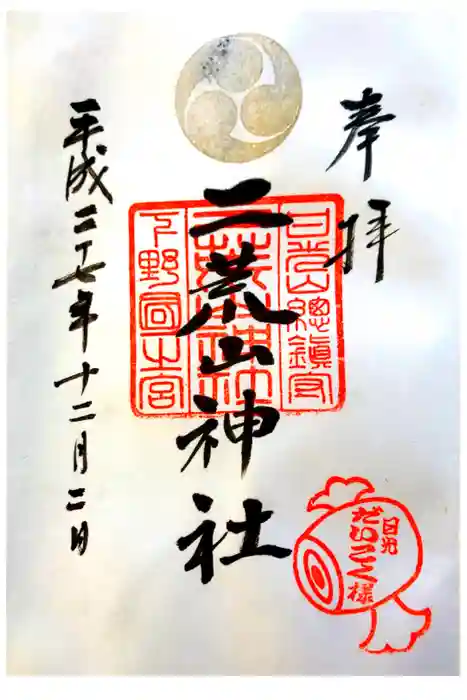 奉拝
日光山總鎮守
二荒山神社
二荒山神社
下野國一之宮
平成二十七年十二月二日
日光
だいこく様